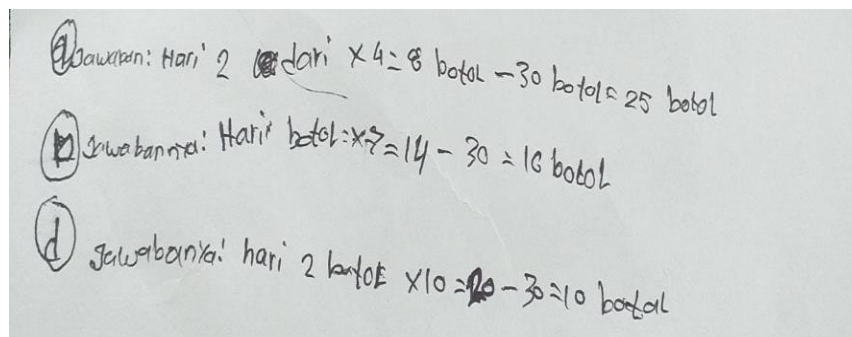 a Jawaban: Hari 2 dari x 4 = 8 botol - 30 botol = 25 botol
b Jawabannya: Hari botol = x 7 = 14 - 30 = 16 botol
d Jawabanya: hari 2 botol x10 = 20 - 30 = 10 botol